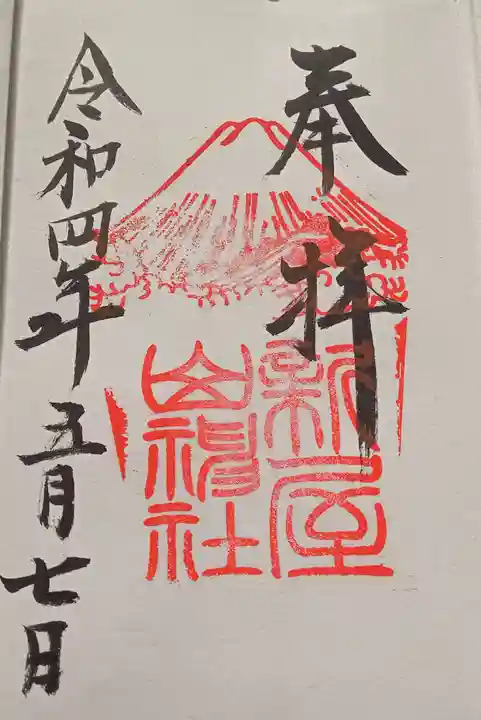 奉拝
新屋
山神社
令和四年五月七日